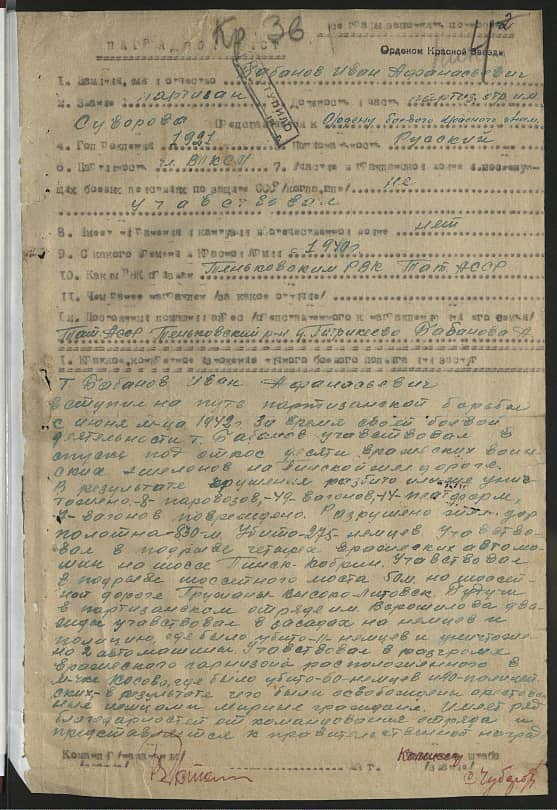 Кр 36
2
НАГРАДНОЙ ЛИСТ
Орденом Красной Звезды
1. Фамилия, имя и отчество Бабанов Иван Афанасьевич
2. Звание партизан Должность, часть
Суворова Представляется к Ордену боевого красного знам.
4. Год рождения 1921 Национальность Русский
6. Партийность чл. ВЛКСМ 7. Участие в гражданской войне и последую-
щих боевых действиях по защите СССР /когда, где/ не
участвовал
8. Имеет ли ранения и контузии в отечественной войне нет
9. С какого времени в Красной Армии с 1940 г.
10. Каким РВК призван Теньковским РВК Тат. АССР
11. Чем ранее награжден /за какое отличие/
12. Постоянный домашний адрес /представленного к награждению или его семьи/
Тат АССР Теньковский р-н д. Патрикеево Бабанова А.
1. Краткое, конкретное изложение личного боевого подвига или заслуг
Т. Бабанов Иван Афанасьевич
вступил на путь партизанской борьбы
с июня м-ца 1942 г. За время своей боевой
деятельности т. Бабанов участвовал в
спуске под откос десяти вражеских воин-
ских эшелонов на Пинской жел. дороге.
В результате крушения разбито и унич-
тожено -8- паровозов, -49- вагонов, -14- платформ,
вагонов повреждено. Разрушено жел. дор
полотна -830-м. Убито -275- немцев. Участво-
вал в подрыве четырех вражеских автома-
шин на шоссе Пинск-Кобрин. Участвовал
в подрыве шоссейного моста 50 м. на шоссей-
ной дороге Пружаны Высоко-Литовск. Будучи
в партизанском отряде им. Ворошилова два-
жды участвовал в засадах на немцев и
полицию, где было убито -11- немцев и уничтоже-
но 2 автомашины. Участвовал в разгроме
вражеского гарнизона расположенного в
м-чке Косово, где было убито -60- немцев и 40- полицей-
ских - в результате чего были освобождены арестован-
ные немцами мирные граждане. Имеет ряд
благодарностей от командования отряда и
представляется к правительственной наград
Командир
штаба
Чубаров